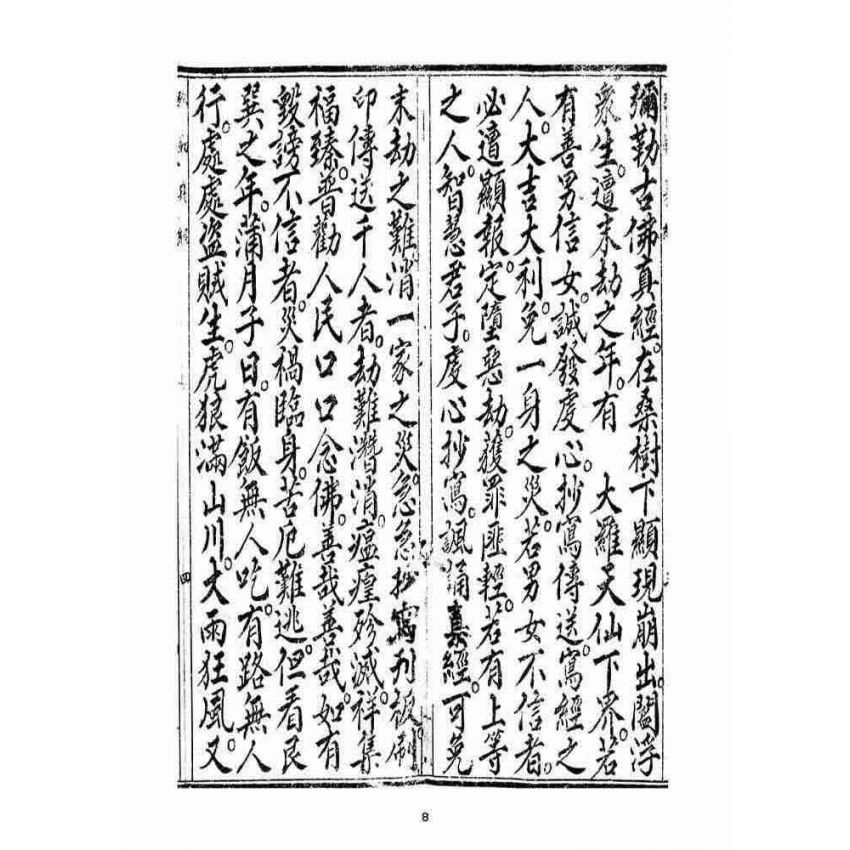 彌勒古佛真經。在桑樹下顯現崩出。閻浮
衆生。遭末劫之年。有　大羅天仙下界。若
有善男信女。誠發虔心。抄寫傳送。寫經之
人。大吉大利。免一身之災。若男女不信者。
必遭顯報。定墮惡劫。獲罪匪輕。若有上等
之人。智慧君子。虔心抄寫。諷誦真經。可免
末劫之難。消一家之災。急急抄寫刋板刷
印。傳送千人者。劫難潛消。瘟瘟殄滅。祥集
福臻。普勸人民。口口念佛。善哉善哉。如有
毀謗不信者。災禍臨身。苦厄難逃。但看艮
巽之年。蒲月子日。有飯無人吃。有路無人
行。處處盜賊生。虎狼滿山川。大雨狂風。又
四
8